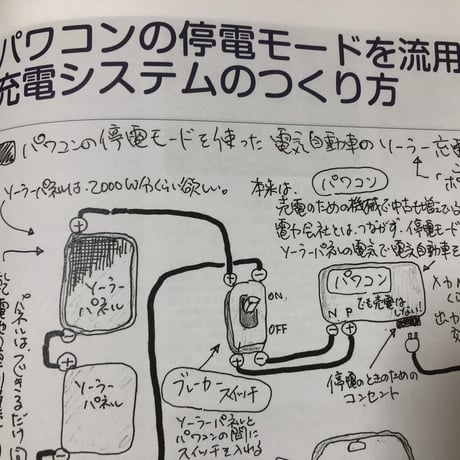 パワコンの停電モードを流用
充電システムのつくり方
パワコンの停電モードを使った 電気自動車のソーラー充電
ソーラーパネルは、2000W分ぐらい欲しい。
本来は、
パワコン
売電のための機械で中古も増えている
電力会社とはつながず、停電モード
ソーラーパネルの電気で電気自動車を
ソーラー
パネル
ソーラー
パネル
パネルはできるだけ
ON
OFF
ブレーカー
スイッチ
ソーラーパネルと
パワコンの間に
スイッチを入れる
パワコン
でも売電は
しない!
N P
停電のときのための
コンセント
入力